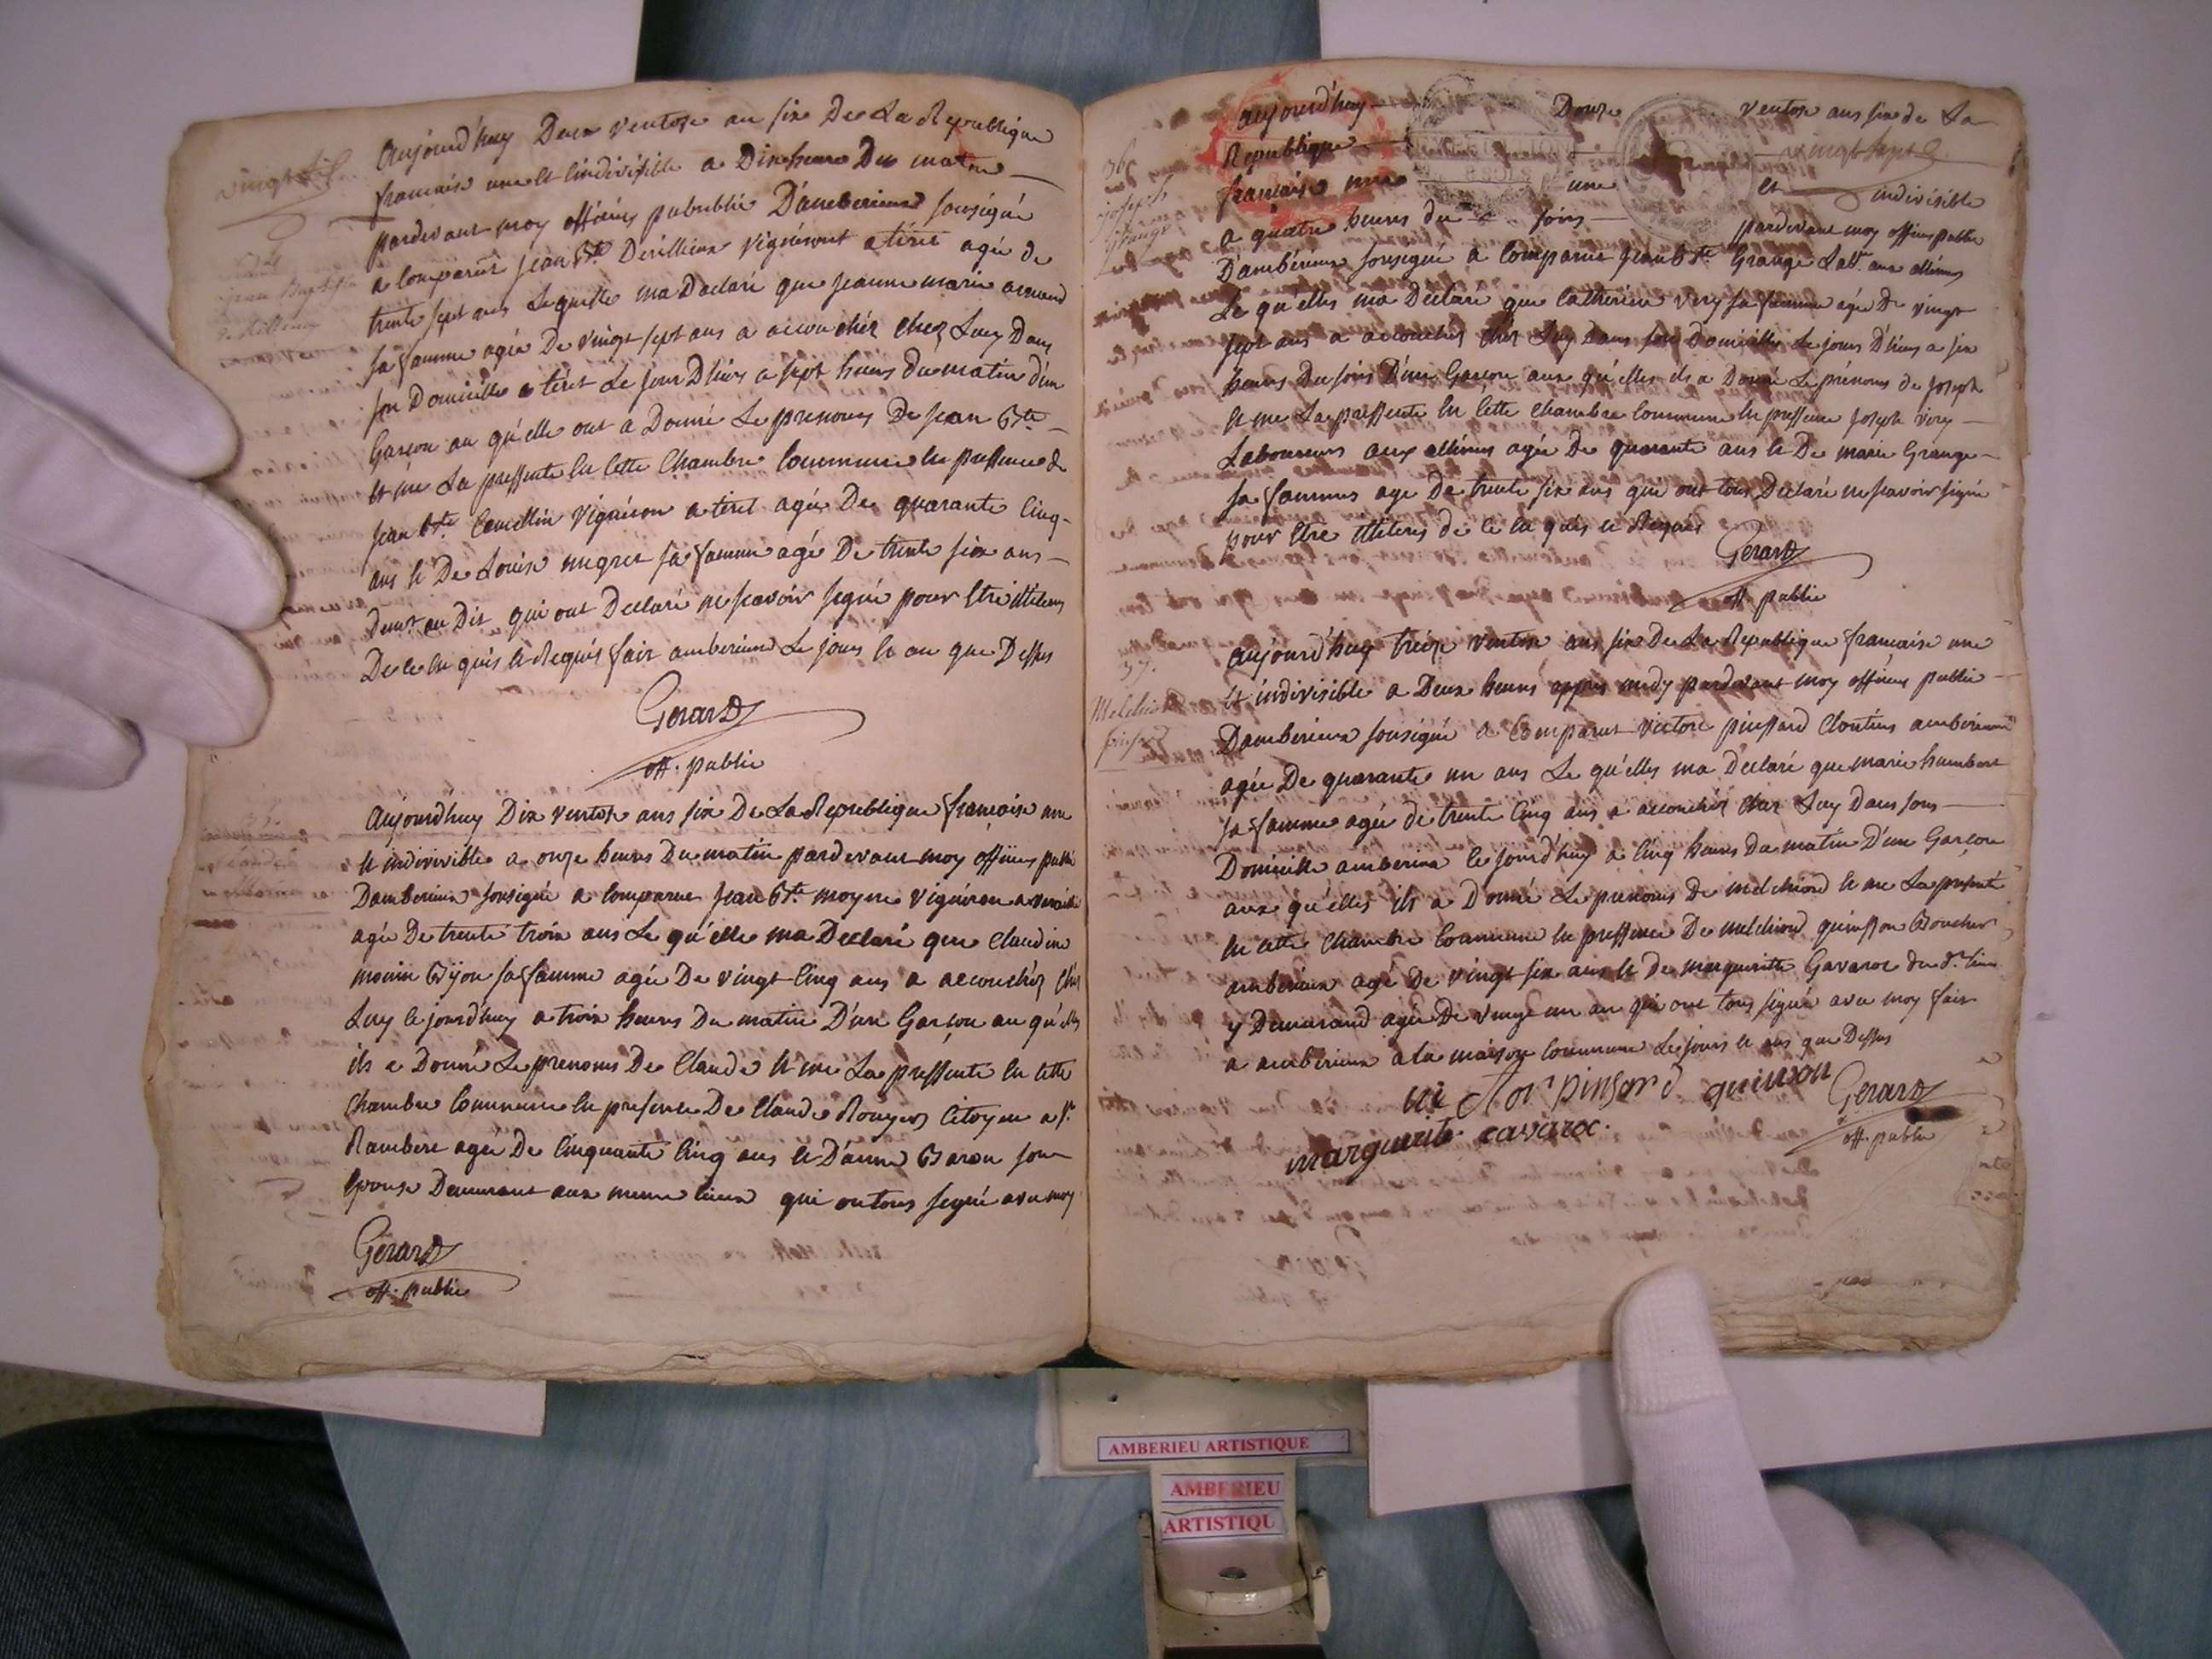 vingt six
Aujourd'huy Deux ventose an six De La Republique
francaise une et Lindivisible a Dix heure Du matin
pardevant moy officiers pubublic D'amberieux sousigné
a comparut jean Bte Derillieux vigneront a tiret agée de
trente sept ans Lequelle ma Declaré que jeanne marie
sa famme agée De vingt sept ans a accouchéz chez Luy Dans
son Domicille a tiret Le jour D'hier a sept heures du matin d'un
Garson au qu'elle ont a Donné Le prenoms De jean Bte
et me La pressente en cette Chambre Commune en pressence de
jean Bte vigneron a tiret agée De quarante Cinq
ans et De Louise megret sa famme agée De trente six ans
Demt au Dit qui ont Declaré ne scavoir signé pour Etre illiterés
De ce en quis et Requis fait amberieux Le jours et an que Dessus
Gerard
off. public
Aujourd'huy Dix ventose ans six De La Republique francaise une
et indivivible a onze heures Du matin pardevant moy officiers public
Damberieux sousigné a comparut jean Bte moyne vigneron
agée De trente trois ans Le qu'elle ma Declaré que Claudine
Bijou sa famme agée De vingt Cinq ans a accouchéz chés
Luy le jourd'huy a trois heures Du matin D'un Garson au qu'elles
ils a Donné Le prenoms De Claude et me La pressente en cette
Chambre Commune en presence De Claude Rouyer Citoyen a St
Rambert agée De Cinquante Cinq ans et D'anne Baron son
Epouse Demeurant aux meme Lieux qui on tous signé avec moy
Gerard
off. public
Aujourd'huy Douze ventose ans six de La
Republique vingt sept
francaise une une et indivisible
a quatre heures du soirs pardevant moy officiers public
36
joseph
Grange
D'ambérieux sousigné a Comparut jean Bte Grange Labr. aux allimes
Le qu'elles ma Declaré que Catherine very sa famme agée De vingt
sept ans a accouchéz chés Luy Dans son Domicilles Le jours D'hiers a six
heures Du soirs D'un Garson aux qu'elles ils a Donné Le prénoms de joseph
et me La pressente en Cette Chambre Commune en pressence joseph very
Laboureurs aux allimes agée De quarante ans et De marie Grange
sa fammes age De trente six ans qui ont tous Declaré ne scavoir signé
pour Etre illiterés de ce en quis et Requis
Gerard
off public
37.
Melchior
pinsard
Aujourd'huy treize ventose ans six De La Republique francaise une
Et indivisible a Deux heures appres midy pardevant moy officiers public
Damberieux sousigné a Comparut victore pinssard Cloutiers amberieux
agée De quarante un ans Le qu'elles ma Declaré que marie humbert
sa famme agée de trente Cinq ans a accouchéz chez Luy Dans sons
Domicille amberieux le jourd'huy a Cinq heures Du matin D'un Garcon
aux qu'elles ils a Donné Le prenoms De melchiord et me La presenté
en cette Chambre Commune en pressence De melchiord quinsson Boucher
amberieux agé De vingt six ans et de margueritte Gavaroc du d. lieux
y Demeurand agée De vingt un an qui ont tous signés avec moy fait
a amberieux a La maison Commune Les jours et ans que Dessus
vic tor pinsard quinson Gerard
off. public
marguerite cavaroc.
AMBERIEU ARTISTIQUE
AMBERIEU
ARTISTIQU